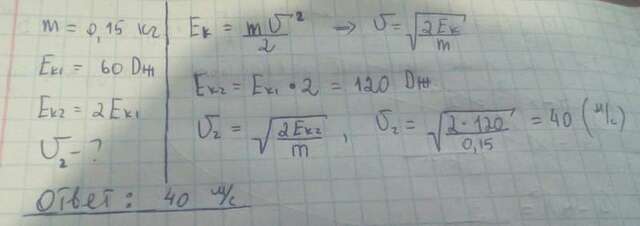 m = 0,15 кг
Eк1 = 60 Dж
Eк2 = 2Eк1
υ2 - ?
Eк = mυ²/2 ⇒ υ = √(2Eк/m)
Eк2 = Eк1 • 2 = 120 Dж.
υ2 = √(2Eк2/m) , υ2 = √(2·120/0,15) = 40 (м/с)
Ответ: 40 м/с